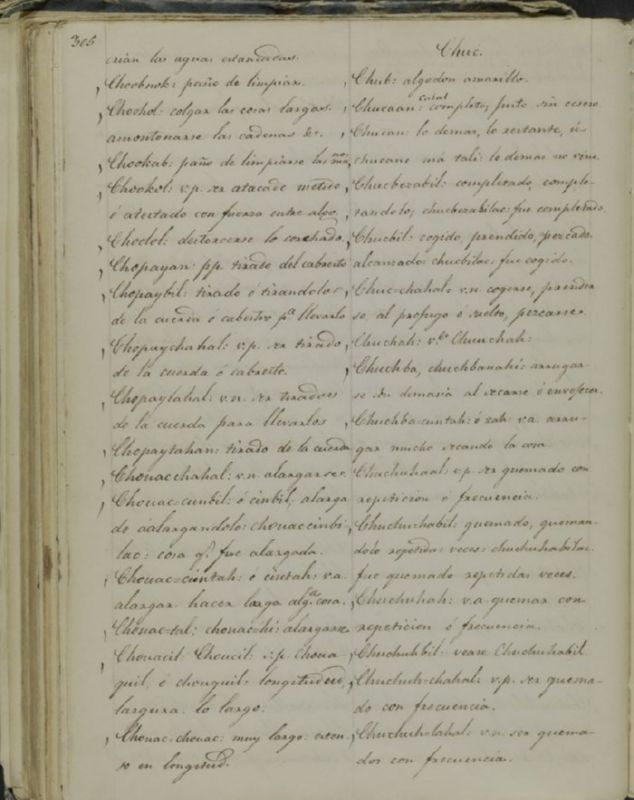 305
crian las aguas estancadas.
Choobnok: paño de limpiar.
Choohol: colgar las cosas largas.
amontonarse las cadenas &c.
Chookab: paño de limpiarse las manos
Chookol: v.p. ser atacado metido
ó atestado con fuerza entre algo.
Choclol: destorcerse lo corchado.
Chopayan: pp. tirado del cabresto
Chopaybil: tirado é tirandolo
de la cuerda ó cabestro pa. llevarlo
Chopaychahal: v.p. ser tirado
de la cuerda ó cabresto.
Chopaytahal: v.n. ser tirados
de la cuerda para llevarlos
Chopaytahan: tirado de la cuerda
Chouacchahal: v.n. alargarse.
Chouac-cunbil: ó cinbil, alarga
do ó alargandolo: chouaccinbi-
lac: cosa q. fue alargada.
Chouac-cuntah: ó cintah: v.a.
alargar hacer larga alga. cosa.
Chouac-tal; chouac-hi: alargarse
Chouacil: Choucil: s.p. Choua
quil, ó chouquil: longitud
largura. lo largo.
Chouac-chouac: muy largo:
en longitud.
Chuc.
Chub: algodon amarillo.
Chucaan: cabal completo, junto sin
Chucan: lo demas, lo restante,
chucane ma tali: lo demas no vino.
Chucbezabil: completado, comple-
tandolo; chucbezabilac: fue completado.
Chucbil: cogido, prendido, pescado.
alcanzado: chucbilac: fue cogido.
Chuc-chahal: v.n. cogerse, prender
se, al profugo ó suelto, pescarse.
Chuchah: Chuuchah:
Chuchba, chuchbanahi: arrugar-
se en demasia al secarse ó envejecer.
Chuchba-cuntah: ó zah: v.a. arru-
gar mucho secando la cosa
Chuchuhaal: v.p. ser quemado con
repeticion ó frecuencia.
Chuchuhabil: quemado, queman-
dolo repetidas veces: chuchuhabilac.
fue quemado repetidas veces.
Chuchuhah: v.a. quemar con
repeticion ó frecuencia.
Chuchuhbil: vease Chuchuhabil
Chuchuh-chahal: v.p. ser quema-
do con frecuencia.
Chuchuh-tahal: v.n. ser quema-
dos con frecuencia.